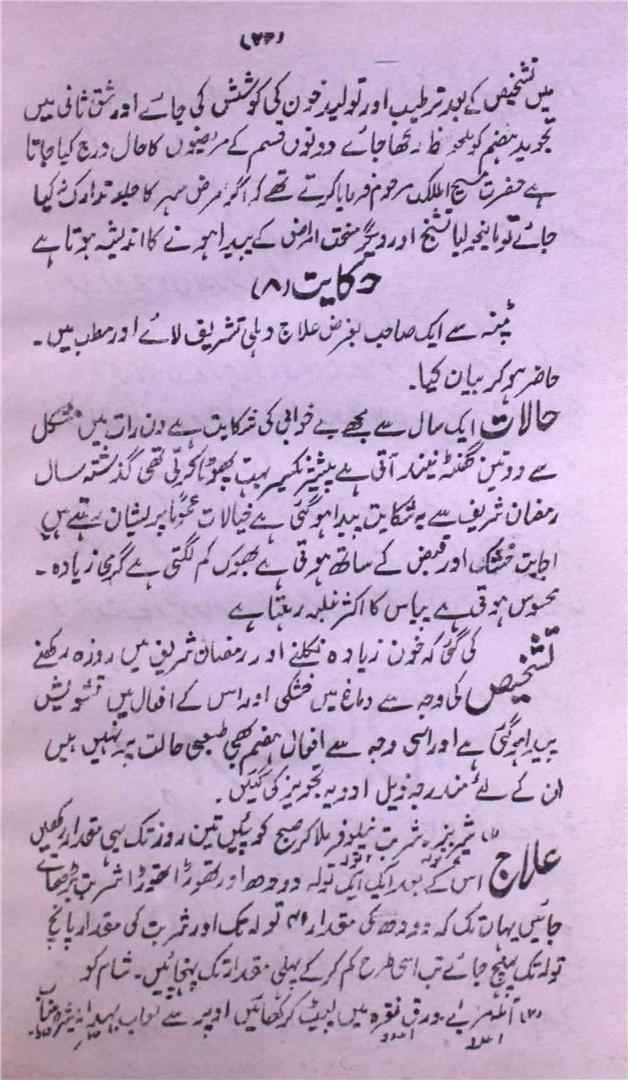 (۲۴)
میں تشخیص کے بعد ترطیب اور تولید خون کی کوشش کی جائے اور شق ثانی میں
تجوید ہضم کو ملحوظ رکھا جائے دونوں قسم کے مریضوں کا حال درج کیا جاتا
ہے حضرت مسیح الملک مرحوم فرمایا کرتے تھے کہ اگر مرض سہر کا جلد تدارک نہ کیا
جائے تو مالیخولیا تشنج اور دیگر سخت امراض کے پیدا ہونے کا اندیشہ ہوتا ہے
حکایت (۸)
پٹنہ سے ایک صاحب بغرض علاج دہلی تشریف لائے اور مطب میں ۔
حاضر ہو کر بیان کیا۔
حالات ایک سال سے مجھے بے خوابی کی شکایت ہے دن رات میں مشکل
سے دو تین گھنٹہ نیند آتی ہے پیشتر نکسیر بہت پھوٹا کرتی تھی گذشتہ سال
رمضان شریف سے یہ شکایت پیدا ہو گئی ہے خیالات عموماً پریشان رہتے ہیں
اجابت خشک اور قبض کے ساتھ ہوتی ہے بھوک کم لگتی ہے گرمی زیادہ ۔
محسوس ہوتی ہے پیاس کا اکثر غلبہ رہتا ہے
تشخیص کی گئی کہ خون زیادہ نکلنے اور رمضان شریف میں روزہ رکھنے
کی وجہ سے دماغ میں خشکی اور اس کے افعال میں تشویش
پیدا ہو گئی ہے اور اسی وجہ سے افعال ہضم بھی طبیعی حالت پر نہیں ہیں
ان کے لئے مندرجہ ذیل ادویہ تجویز کی گئیں ۔
علاج (۱) شیر بز شربت نیلوفر ملا کر صبح کو پئیں تین روز تک یہی مقدار رکھیں
اس کے بعد ایک ایک تولہ دودھ اور تھوڑا تھوڑا شربت بڑھاتے
جائیں یہاں تک کہ دودھ کی مقدار تولہ تک اور شربت کی مقدار پانچ
تولہ تک پہنچ جائے تب اسی طرح کم کر کے پہلی مقدار تک پہنچائیں۔ شام کو
(۲) ورق نقرہ میں لپیٹ کر کھائیں اوپر سے لعاب بہدانہ